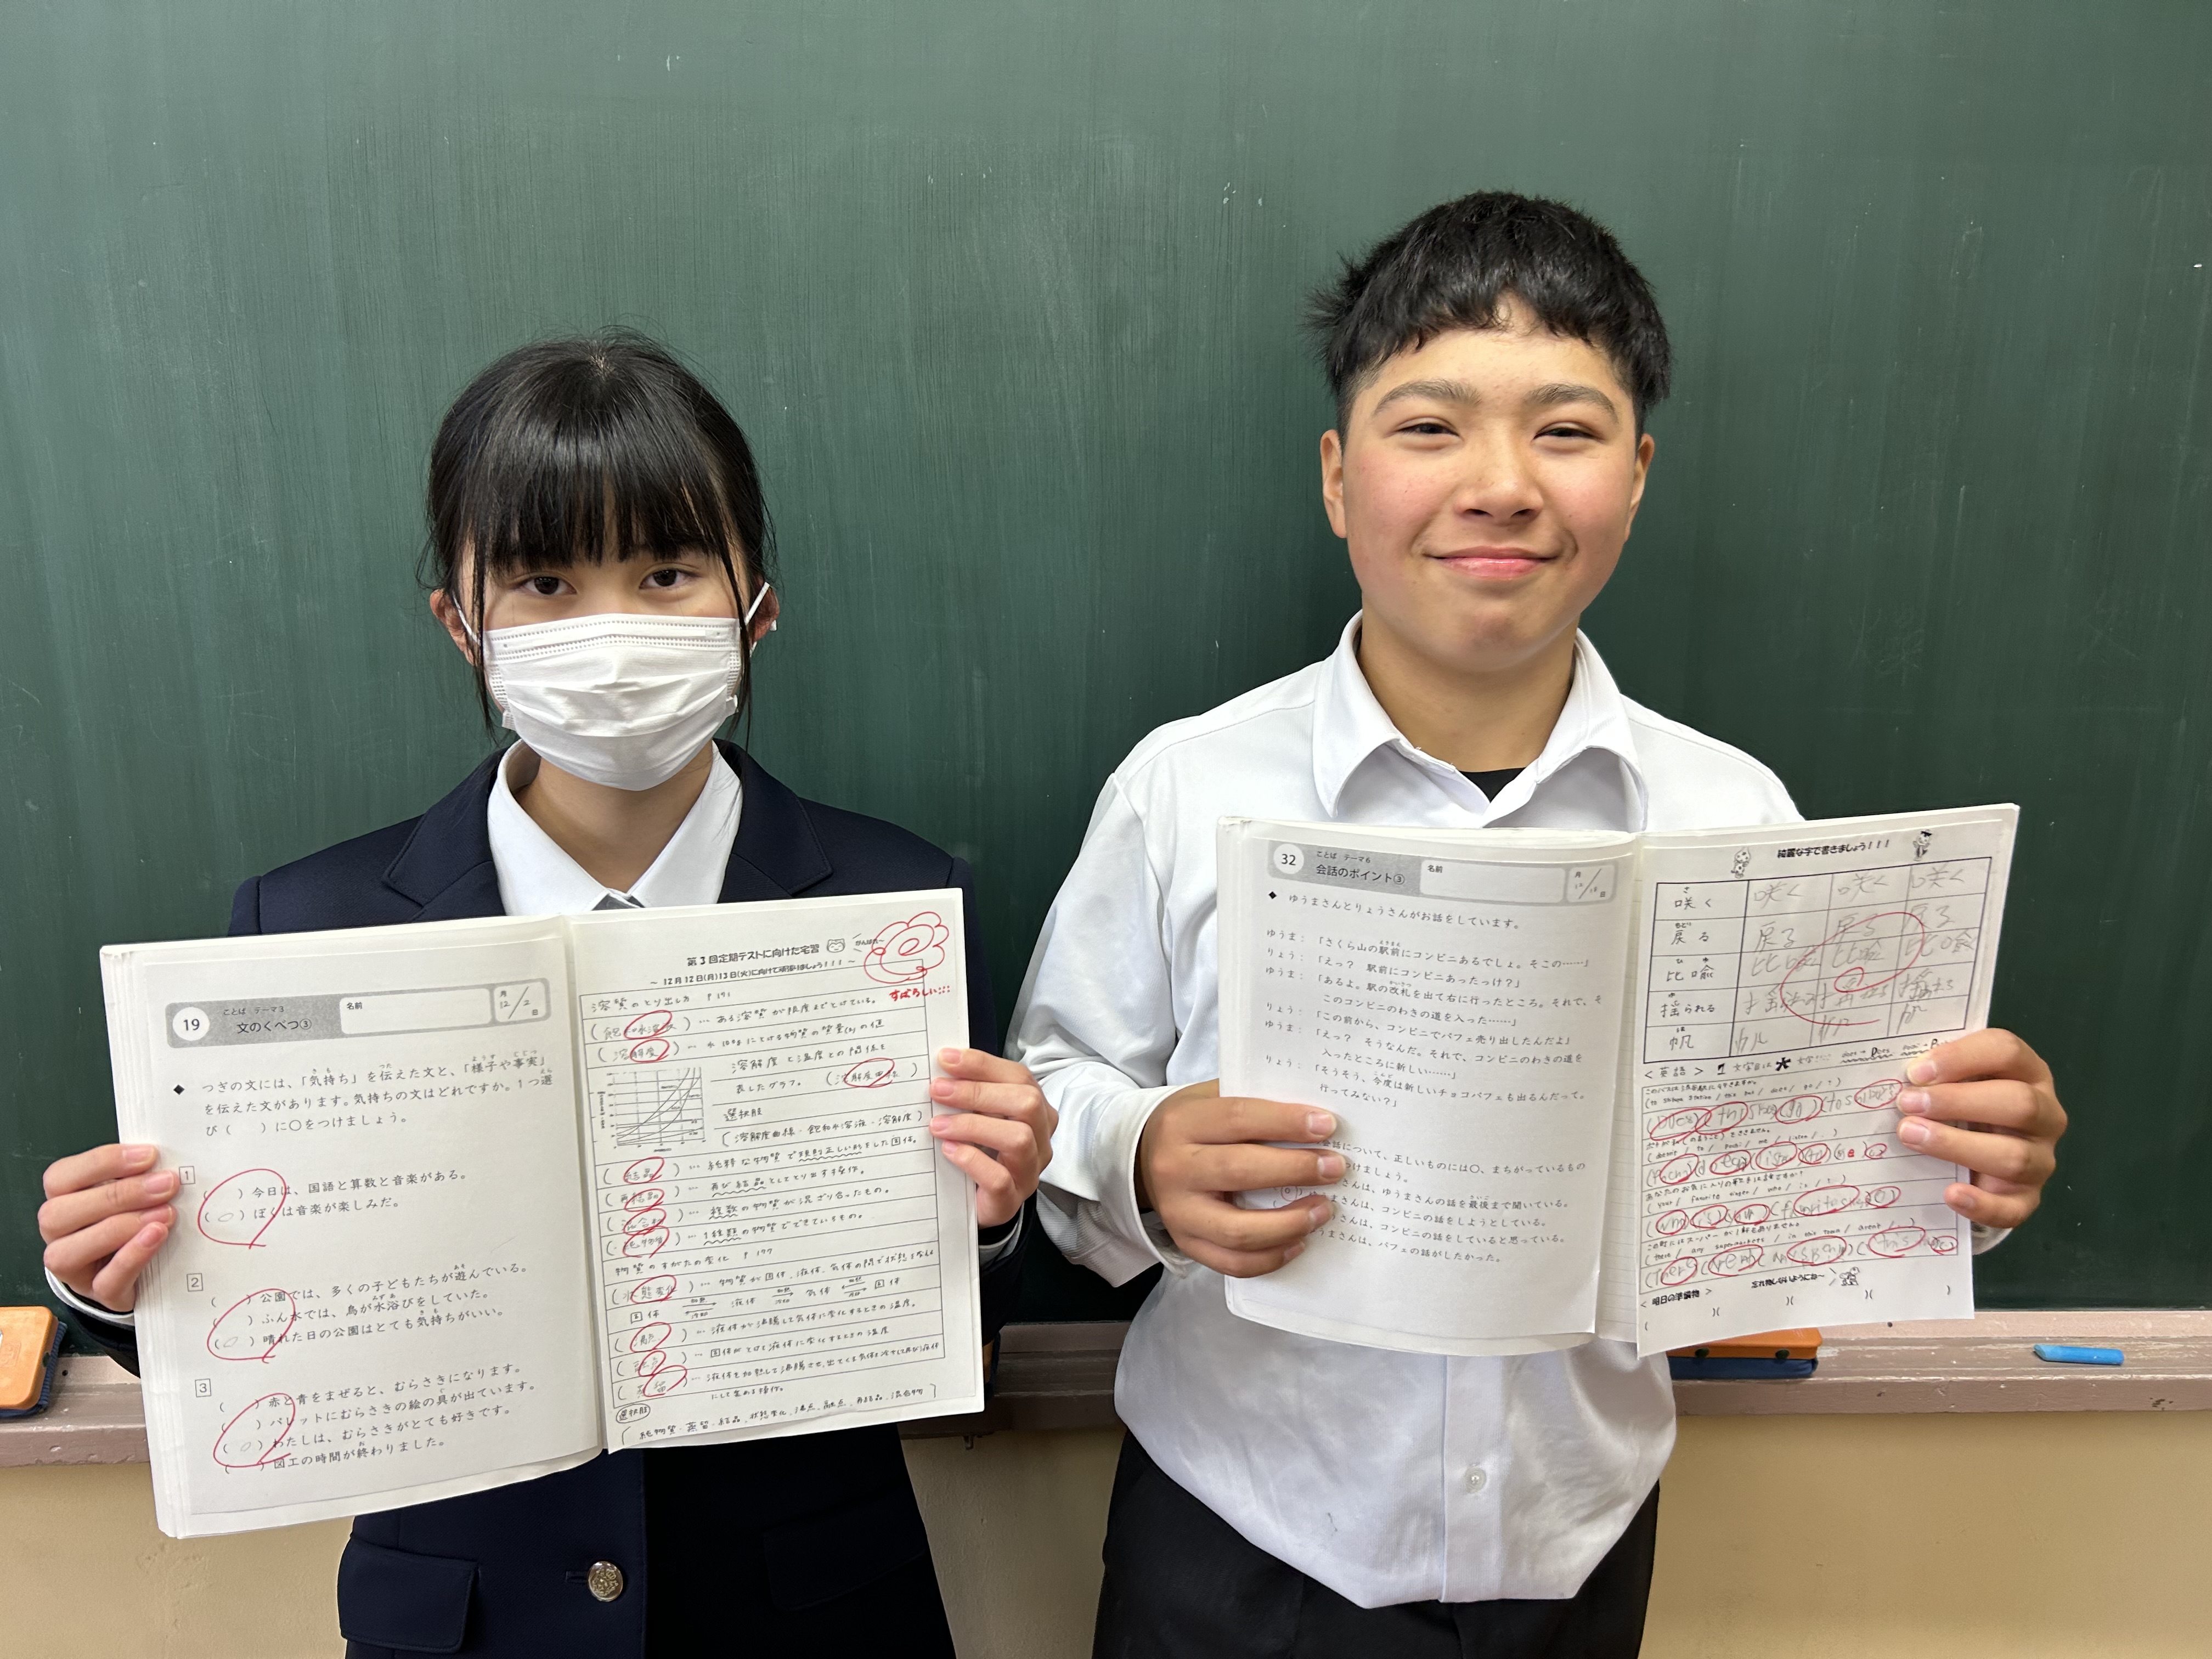 19
ことば テーマ3
文のくべつ③
名前
月
12/2
日
◆ つぎの文には、「気持ち」を伝えた文と、「様子や事実」
を伝えた文があります。気持ちの文はどれですか。1つ選
び( )に○をつけましょう。
1
( )今日は、国語と算数と音楽がある。
(○)ぼくは音楽が楽しみだ。
2
( )公園では、多くの子どもたちが遊んでいる。
( )ふん水では、鳥が水浴びをしていた。
(○)晴れた日の公園はとても気持ちがいい。
3
( )赤と青をまぜると、むらさきになります。
( )パレットにむらさきの絵の具が出ています。
(○)わたしは、むらさきがとても好きです。
( )図工の時間が終わりました。
第3回定期テストに向けた宅習
～12月12日(月)13日(火)に向けて頑張りましょう!!!～
がんばれ～
すばらしい:::
溶質のとり出し方 P171
(飽和水溶液)…ある溶質が限度までとけている。
(溶解度)…水100gにとける物質の質量(g)の値
溶解度と温度との関係を
表したグラフ。(溶解度曲線)
選択肢
(溶解度曲線・飽和水溶液・溶解度)
(結晶)…純粋な物質で規則正しい形をした固体。
(再結晶)…再び結晶としてとり出す操作。
(混合物)…複数の物質が混ざり合ったもの。
(純物質)…1種類の物質でできているもの。
物質のすがたの変化 P177
(状態変化)…物質が固体、液体、気体の間で状態を
固体 加熱 冷却 液体 加熱 冷却 気体 固体
(沸点)…液体が沸騰して気体に変化するときの温度。
(融点)…固体がとけて液体に変化するときの温度
(蒸留)…液体を加熱して沸騰させ、出てくる気体を冷やして再び液体
にして集める操作。
選択肢
純物質・蒸留・結晶・状態変化・沸点・融点・再結晶・混合物
32
ことば テーマ6
会話のポイント③
名前
月
日
◆ ゆうまさんとりょうさんがお話をしています。
ゆうま:「さくら山の駅前にコンビニあるでしょ。そこの……」
りょう:「えっ? 駅前にコンビニあったっけ?」
ゆうま:「あるよ。駅の改札を出て右に行ったところ。それで、そ
このコンビニのわきの道を入った……」
りょう:「この前から、コンビニでパフェ売り出したんだよ」
ゆうま:「えっ? そうなんだ。それで、コンビニのわきの道を
入ったところに新しい……」
りょう:「そうそう、今度は新しいチョコパフェも出るんだって。
行ってみない?」
会話について、正しいものには○、まちがっているもの
つけましょう。
さんは、ゆうまさんの話を最後まで聞いている。
ゆうまさんは、コンビニの話をしようとしている。
さんは、コンビニの話をしていると思っている。
うまさんは、パフェの話がしたかった。
綺麗な字で書きましょう!!!
咲く 咲く 咲く 咲く
戻る 戻る 戻る 戻る
比喩 比喩 比喩 比喩
揺られる
帆 帆 帆 帆
<英語> 1文字目に
忘れ物しないようにね～
<明日の準備物>
( )( )( )( )